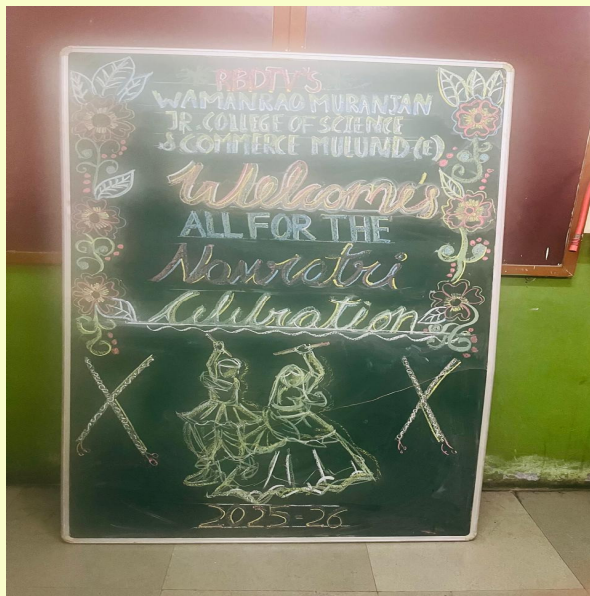 R.B.D.T.V'S
WAMANRAO MURANJAN
JR. COLLEGE OF SCIENCE
& COMMERCE MULUND (E)
Welcome's
ALL FOR THE
Navratri
Celebration
2025-26